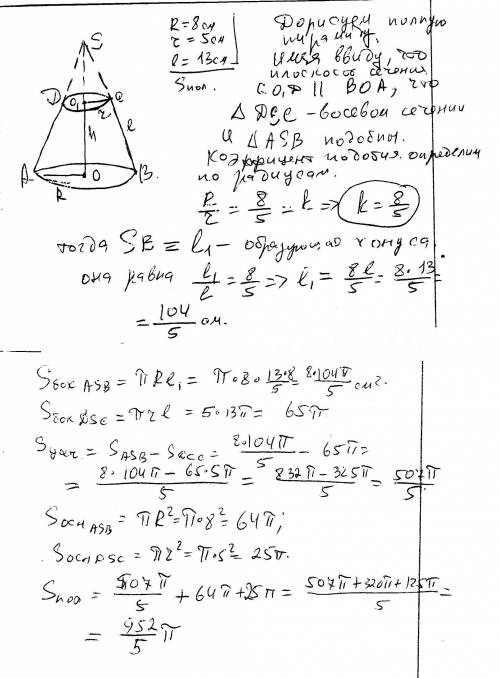 R = 8 см
r = 5 см
l = 13 см
Sпол.
Дорисуем полную
пирамиду.
имея ввиду, что
плоскость сечения
CO₁D || BOA, что
Δ DSC - восевом сечении
и Δ ASB подобны.
Коэффициент подобия определим
по радиусам.
R/r = 8/5 = k => k = 8/5
тогда SB = l₁ - образующая конуса.
она равна l₁/l = 8/5 => l₁ = 8l/5 = 8·13/5 =
= 104/5 см.
S
D
O₁
C
r
h
l
A
O
B
R
Sбок ASB = πRl₁ = π·8·13·8/5 = 8·104π/5 см².
Sбок DSC = πrl = 5·13π = 65π
Sусеч = SASB - SDSC = 8·104π/5 - 65π =
= 8·104π - 65·5π/5 = 832π - 325π/5 = 507π/5
Sосн ASB = πR² = π·8² = 64π;
Sосн DSC = πr² = π·5² = 25π.
Sпол = 507π/5 + 64π + 25π = 507π + 320π + 125π/5 =
= 952/5 π